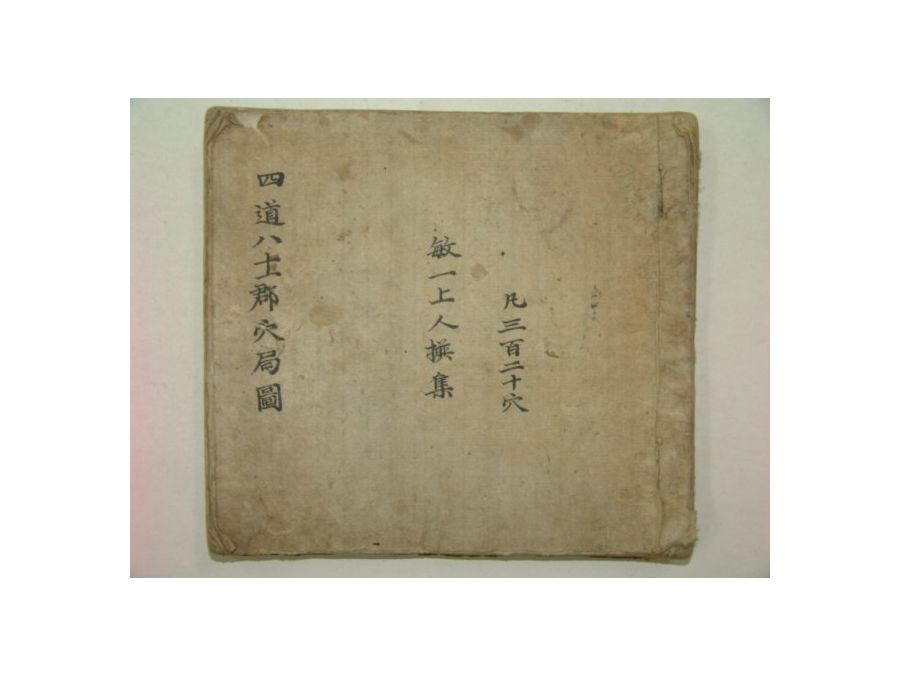 凡三百二十穴
敏一上人撰集
四道八十郡穴局圖